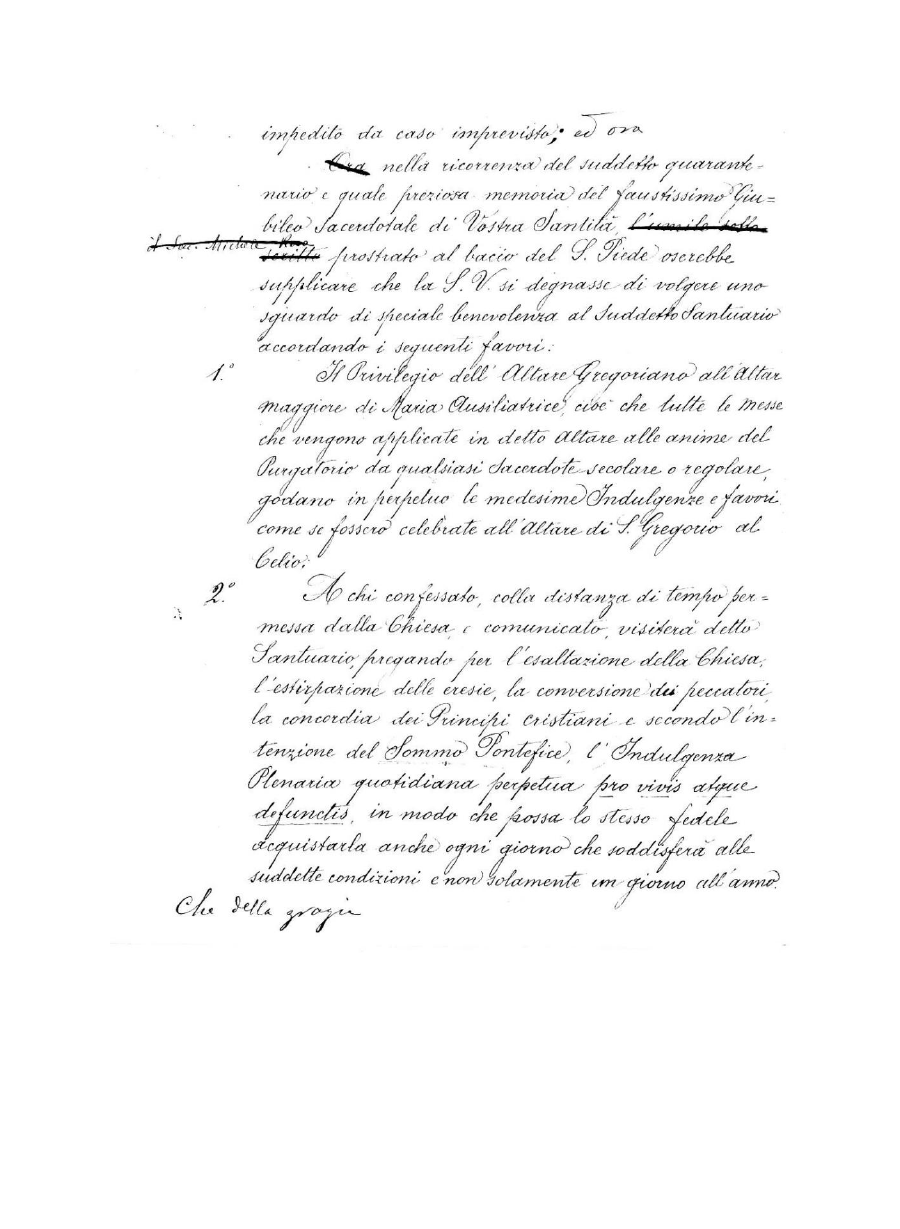 impedito da caso imprevisto; ed ora
Ora nella ricorrenza del suddetto quarante-
nario e quale preziosa memoria del faustissimo Giu-
bileo Sacerdotale di Vostra Santità, l'umile sotto-
il Sac. Michele Rua
scritto prostrato al bacio del S. Piede oserebbe
supplicare che la S. V. si degnasse di volgere uno
sguardo di speciale benevolenza al suddetto Santuario
accordando i seguenti favori:
1.° Il Privilegio dell' Altare Gregoriano all'Altar
maggiore di Maria Ausiliatrice, cioè che tutte le messe
che vengono applicate in detto Altare alle anime del
Purgatorio da qualsiasi Sacerdote secolare o regolare,
godano in perpetuo le medesime Indulgenze e favori
come se fossero celebrate all'Altare di S. Gregorio al
Celio.
2.° A chi confessato, colla distanza di tempo per=
messa dalla Chiesa, e comunicato, visiterà detto
Santuario, pregando per l'esaltazione della Chiesa,
l'estirpazione delle eresie, la conversione dei peccatori,
la concordia dei Principi cristiani e secondo l'in=
tenzione del Sommo Pontefice, l' Indulgenza
Plenaria quotidiana perpetua pro vivis atque
defunctis, in modo che possa lo stesso fedele
acquistarla anche ogni giorno che soddisferà alle
suddette condizioni e non solamente un giorno all'anno.
Che della grazia